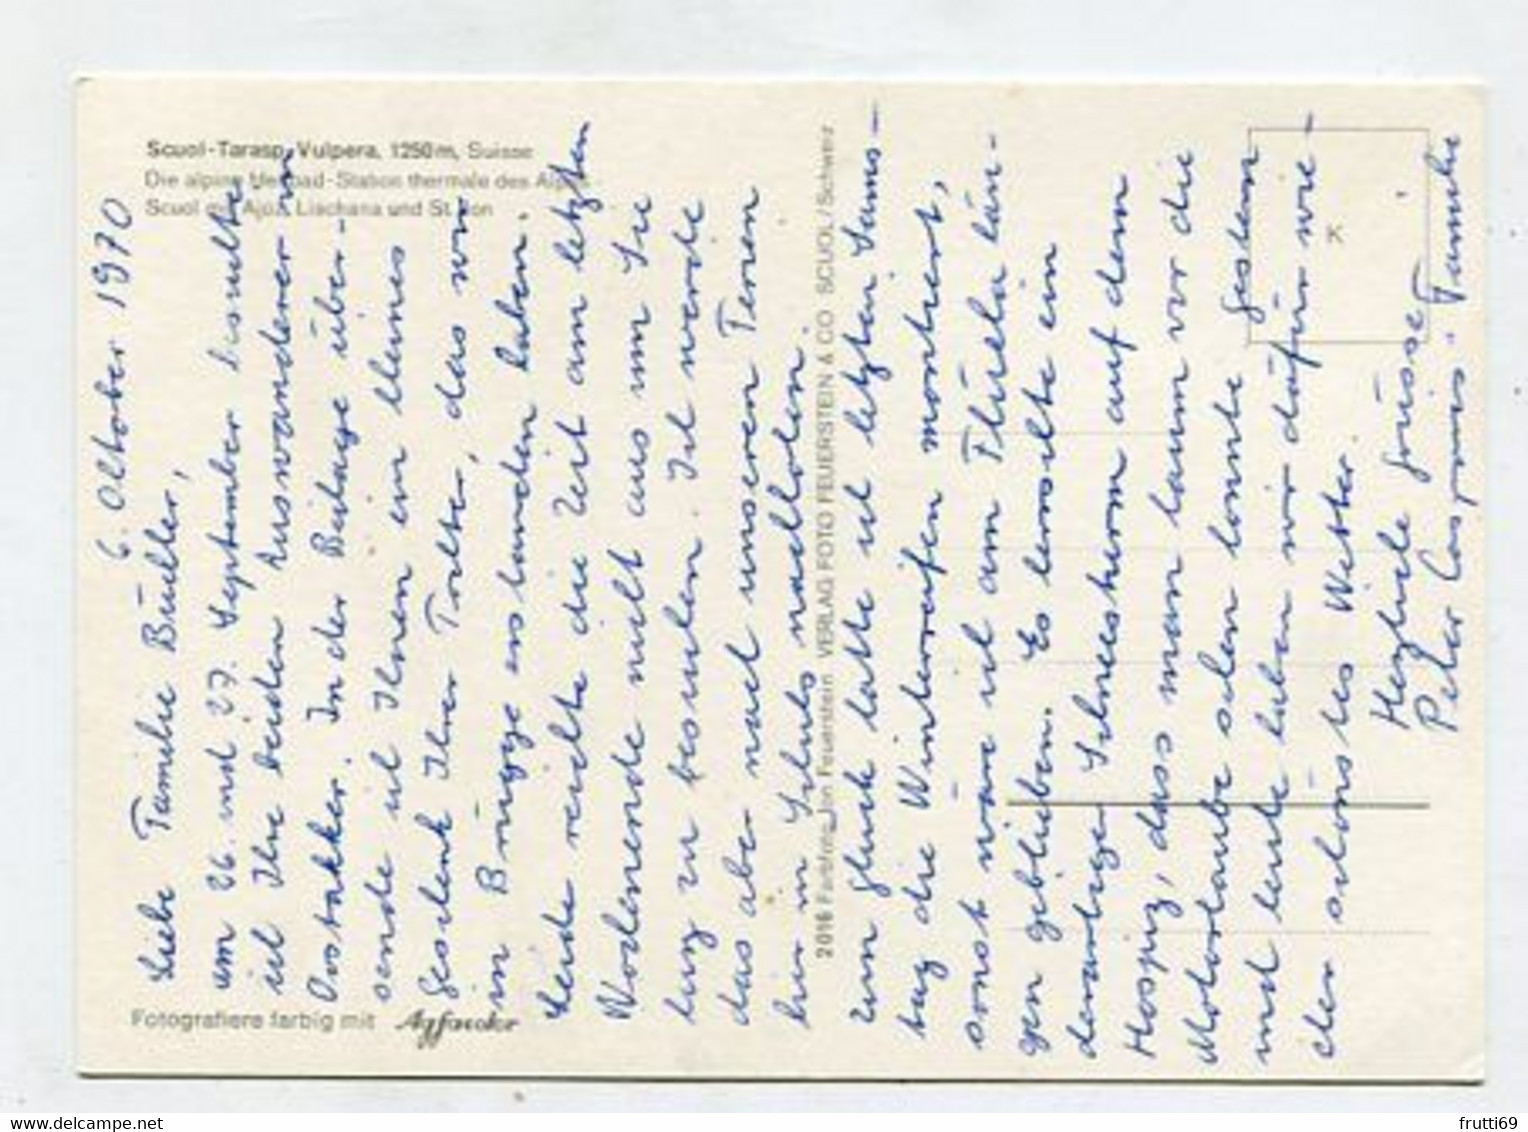 Scuol-Tarasp-Vulpera, 1250 m, Suisse
Die alpine Heilbad-Station thermale des Alpes
Scuol mit Ajüz, Lischana und St. Jon
Fotografiere farbig mit Agfacolor
2016 Farbfoto Jon Feuerstein VERLAG FOTO FEUERSTEIN & CO SCUOL/Schweiz
6. Oktober 1970
Liebe Familie Bühler,
am 26. und 27. September besuchte
ich Ihre beiden Auswanderer in
Oostakker. In der Beilage über-
sende ich Ihnen ein kleines
Geschenk Ihrer Tochter, das wir
in Brügge erstanden haben.
Leider reichte die Zeit am letzten
Wochenende nicht aus um Sie
kurz zu besuchen. Ich werde
das aber nach unseren Ferien
hier in Schuls nachholen.
Zum Glück hatte ich letzten Sams-
tag die Winterreifen montiert,
sonst wäre ich am Flüela hän-
gen geblieben. Es herrschte ein
derartiger Schneesturm auf dem
Hospiz, dass man kaum vor die
Motorhaube sehen konnte gestern
und heute haben wir dafür wie-
der schönstes Wetter.
Herzliche Grüsse
Peter Casparis + Familie
frutti69
delcampe.net